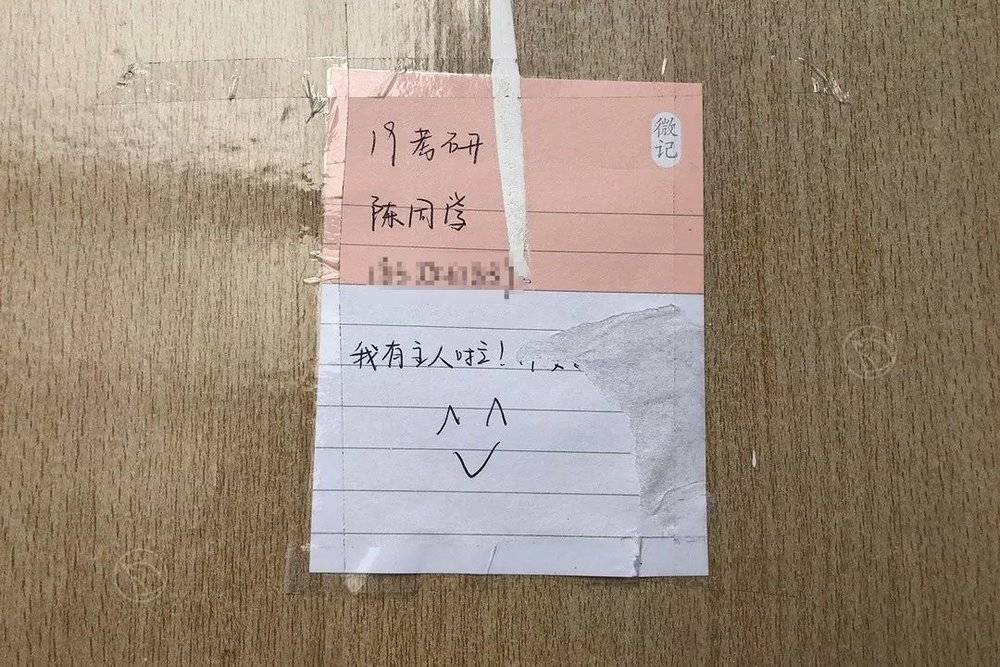 微记
19考研
陈同学
我有主人啦！